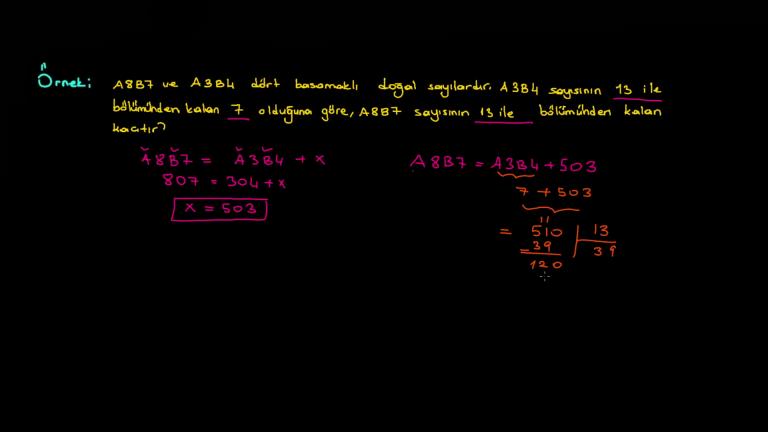 Örnek: A8B7 ve A3B4 dört basamaklı doğal sayılardır. A3B4 sayısının 13 ile
bölümünden kalan 7 olduğuna göre, A8B7 sayısının 13 ile bölümünden kalan
kaçtır?
A8B7 = A3B4 + x
807 = 304 + x
x = 503
A8B7 = A3B4 + 503
7 + 503
= 510 13
- 39 39
120